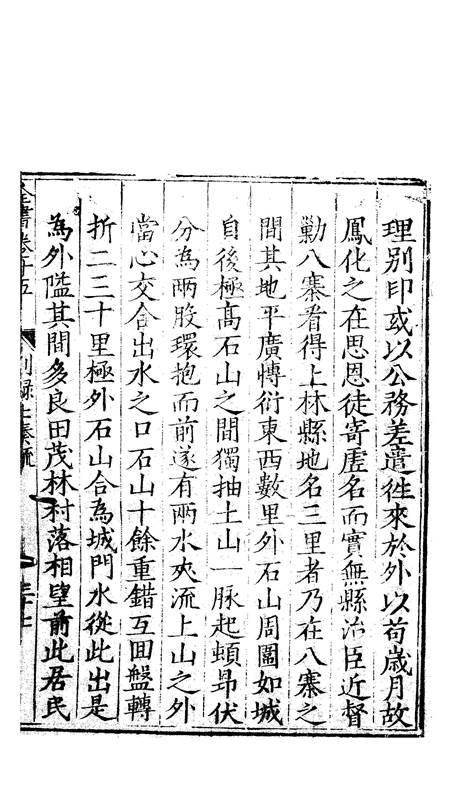 理別印或以公務差遣往來於外以苟歲月故
鳳化之在思恩徒寄虛名而實無縣治臣近督
勦八寨看得上林縣地名三里者乃在八寨之
間其地平廣博衍東西數里外石山周圍如城
自後極高石山之間獨抽土山一脉起頓昻伏
分為兩股環抱而前遂有兩水夾流上山之外
當心交合出水之口石山十餘重錯互回盤轉
折二三十里極外石山合為城門水從此出是
為外隘其間多良田茂林村落相望前此居民
全書卷十五 別録七奏疏